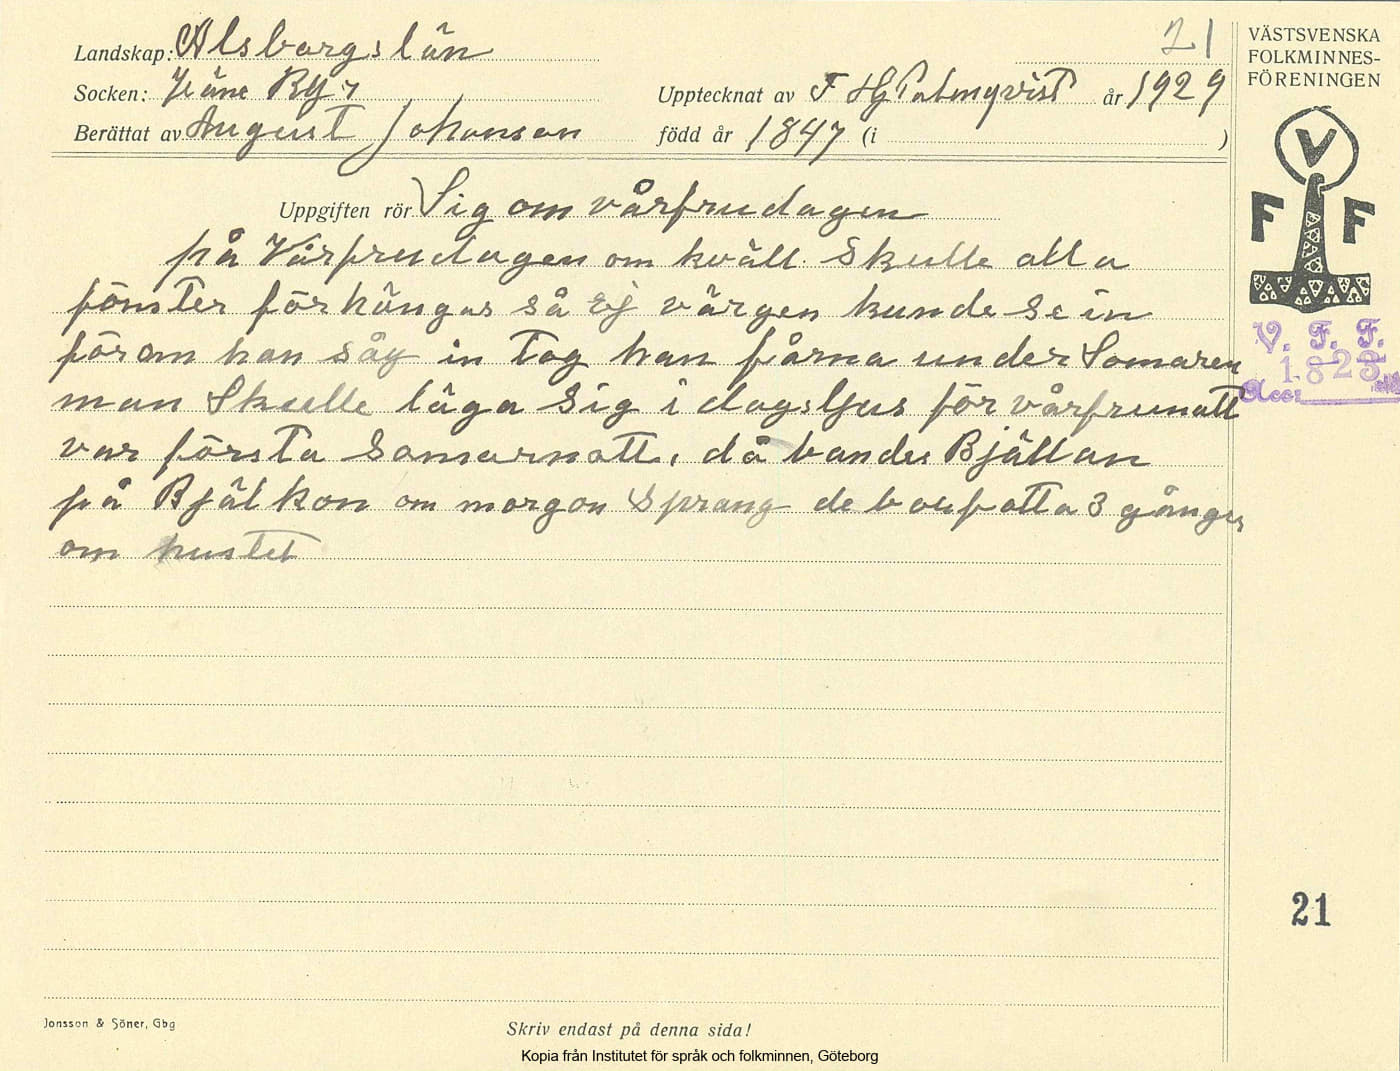 21
VÄSTSVENSKA
FOLKMINNES-
FÖRENINGEN
Landskap: Alsborgs län
Socken: Jäne Ryr
Upptecknat av F HG Palmqvist år 1929
Berättat av August Johanson född år 1847 (i )
V
F F
Uppgiften rör Sig om vårfrudagen
på Vårfrudagen om kväll skulle alla
fönster förhängas så ej värgen kunde se in
för om han såg in tog han fårna under Somaren
man Skulle läga sig i dagsljus för vårfrunatt
var första Somarnatt, då bandes Bjällan
på Bjälkon om morgon Sprang de barfotta 3 gånger
om hustet
V. F. F.
1823
Acc:
21
Jonsson & Söner, Gbg
Skriv endast på denna sida!
Kopia från Institutet för språk och folkminnen, Göteborg